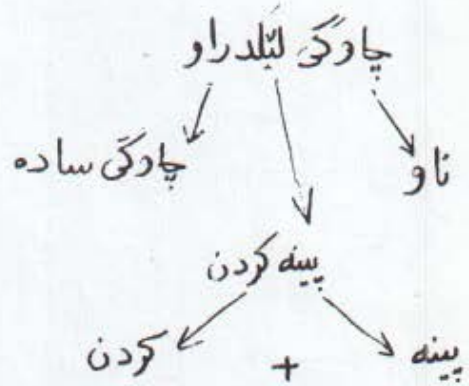 چاوگی لێکدراو
ناو چاوگی سادە
پینە کردن
پینە + کردن